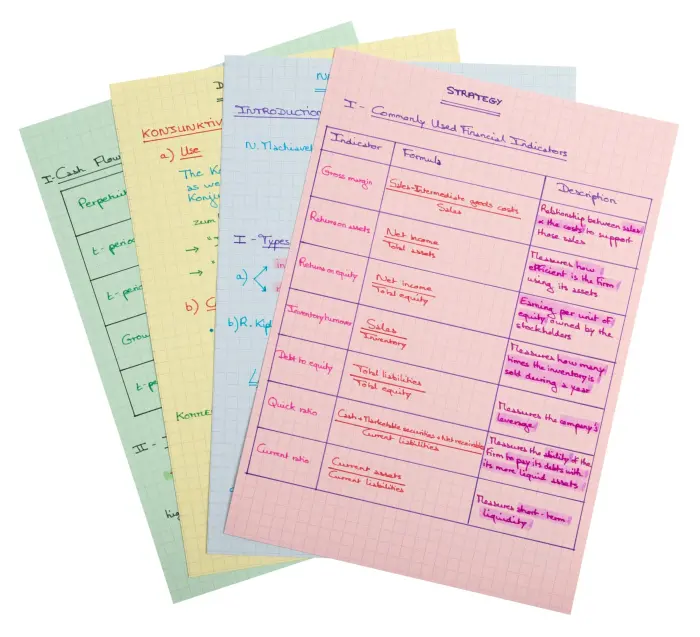 I- Cash Flow
Perpetui
t-perio
t-perio
Grow
t-pe
II-
hig
D
KONJUNKTIV
a) Use
The Ko
as we
Konju
zum
→
→
b)
KORRE
N
INTRODUCTION
N. Machiavel
I - Types
a)
in
b) R. Kipl
STRATEGY
I - Commonly Used Financial Indicators
Indicator
Formula
Description
Gross margin
Sales-Intermediate goods costs
Sales
Relationship between sales
& the costs to support
those sales
Return on assets
Net income
Total assets
Measures how
efficient is the firm
using its assets
Return on equity
Net income
Total equity
Earning per unit of
equity owned by the
stockholders
Inventory turnover
Sales
Inventory
Measures how many
times the inventory is
sold during a year
Debt to equity
Total liabilities
Total equity
Measures the company's
leverage
Quick ratio
Cash + Marketable securities + Net receivables
Current liabilities
Measures the ability of the
firm to pay its debts with
its more liquid assets
Current ratio
Current assets
Current liabilities
Measures short-term
liquidity